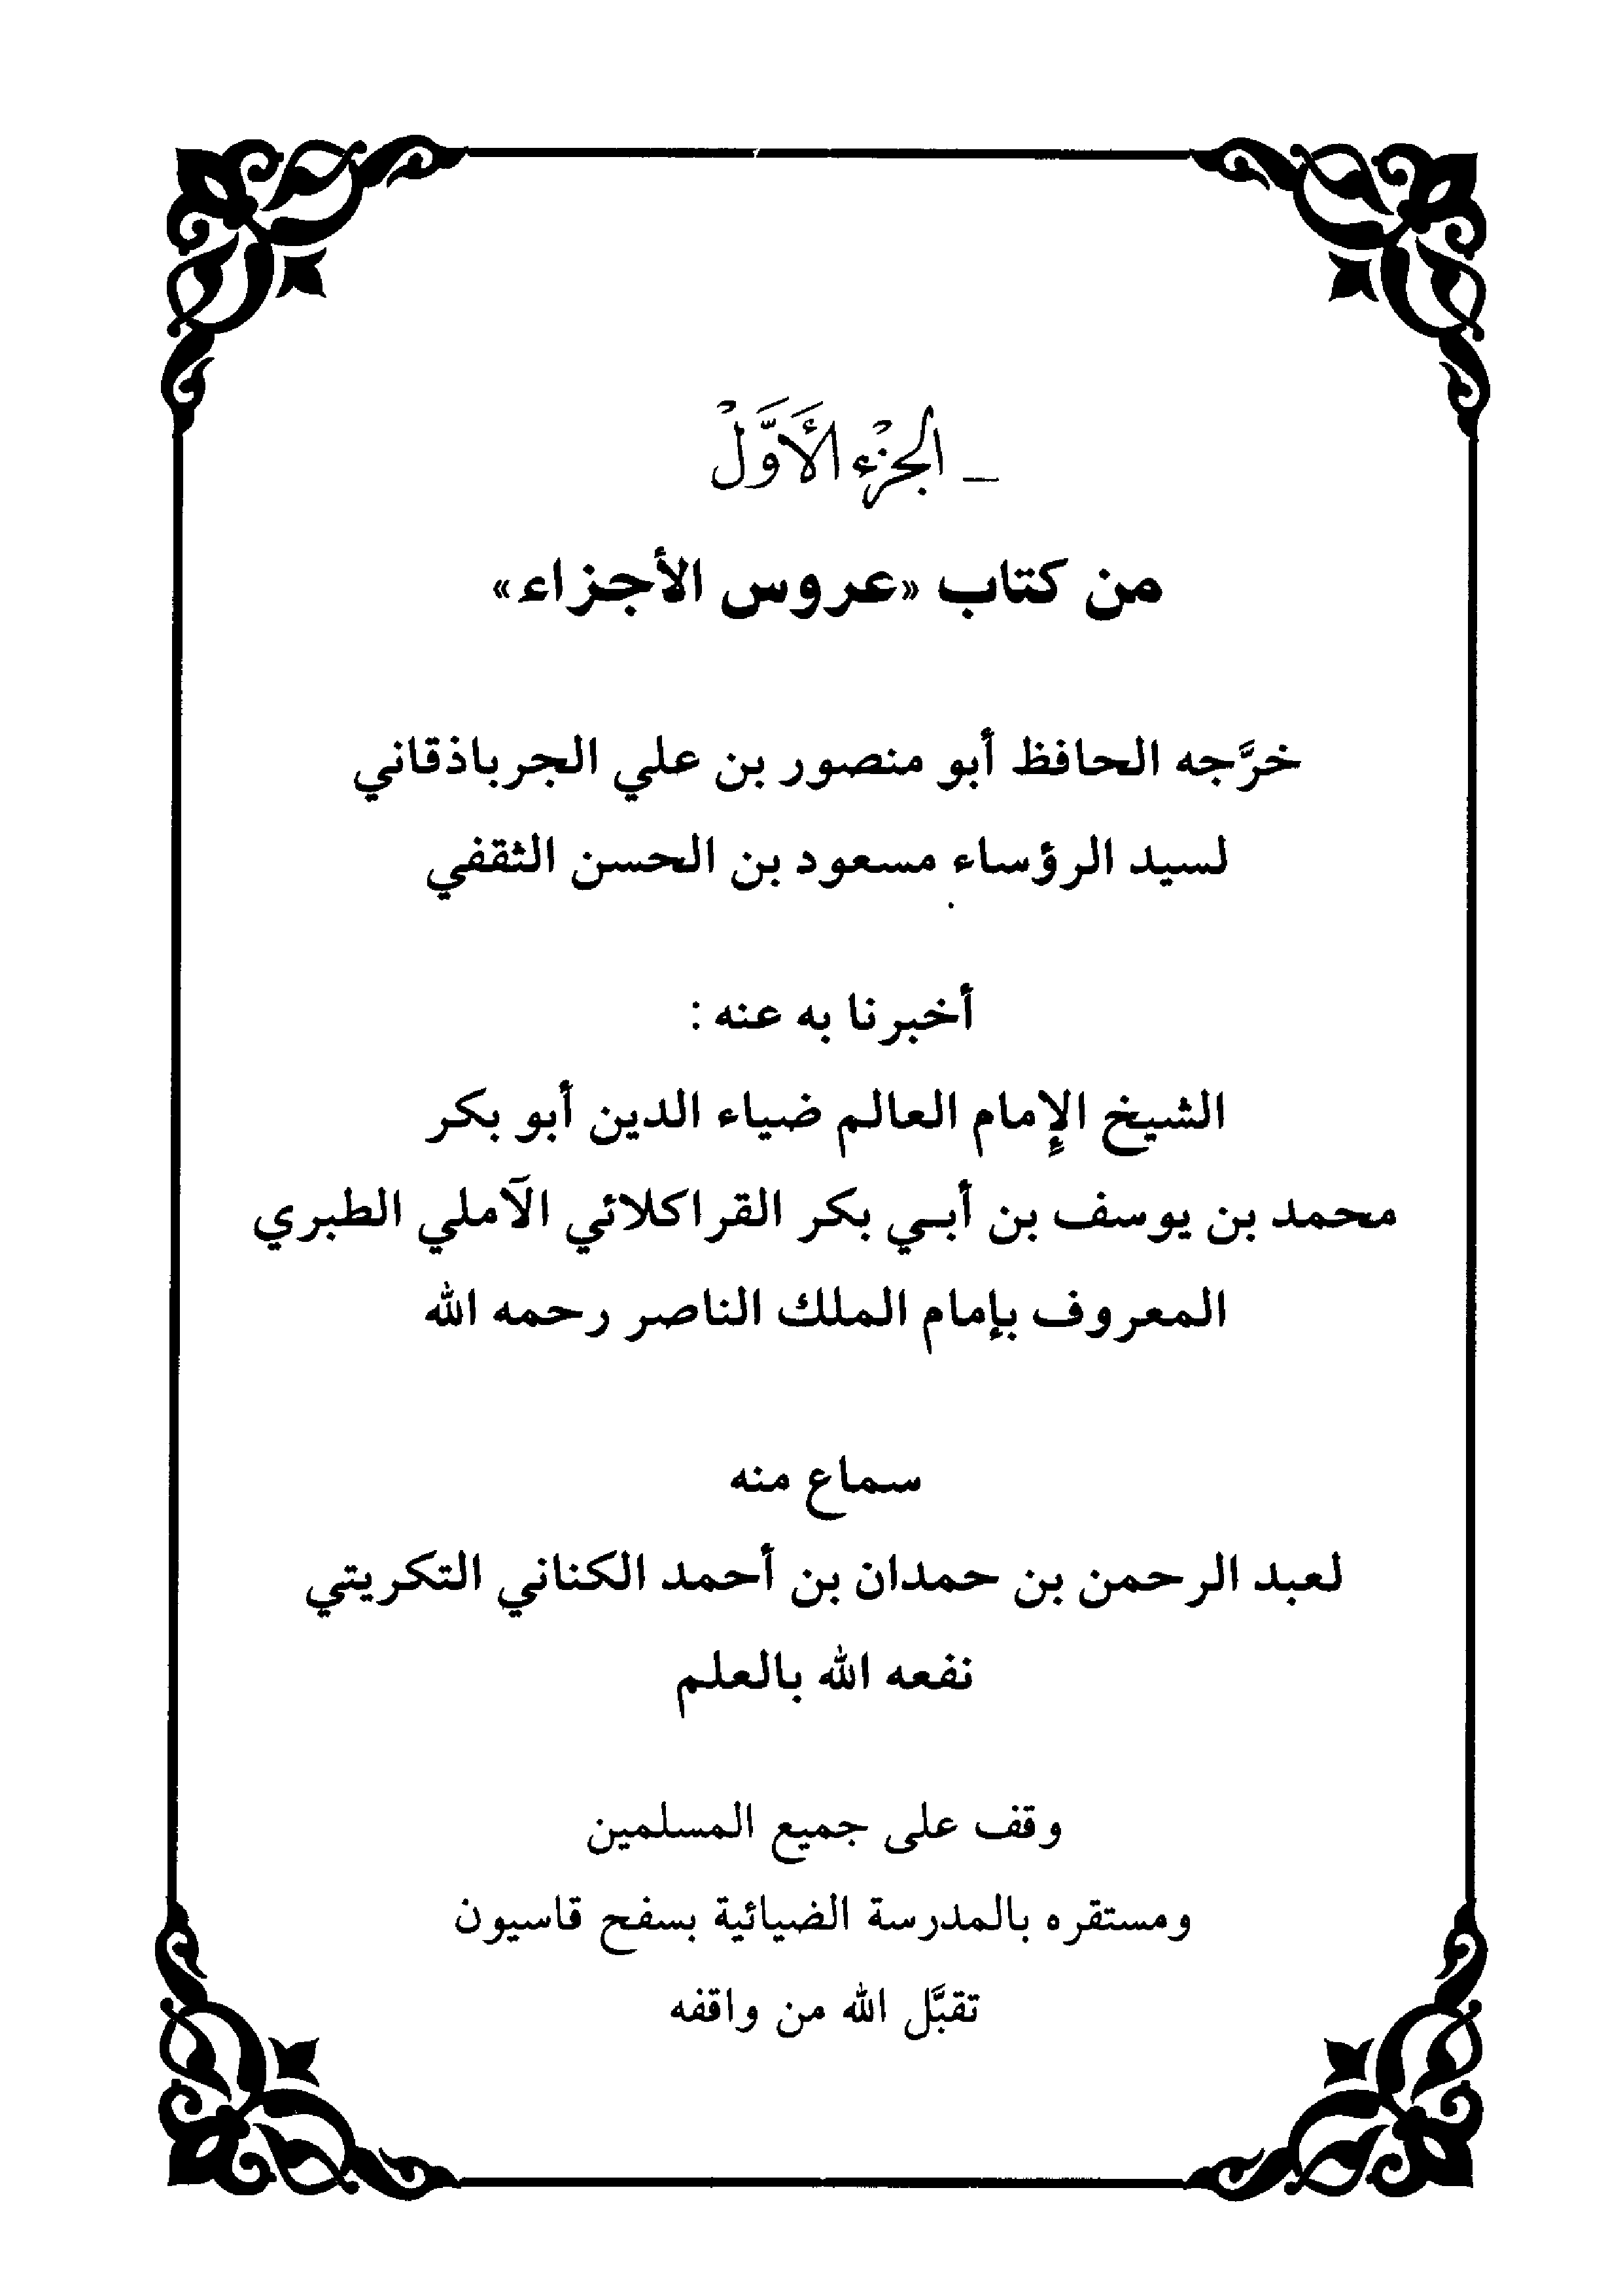 ـ الجزء الأوَّل
من كتاب «عروس الأجزاء»
خرَّجه الحافظ أبو منصور بن علي الجرباذقاني
لسيد الرؤساء مسعود بن الحسن الثقفي
أخبرنا به عنه :
الشيخ الإمام العالم ضياء الدين أبو بكر
محمد بن يوسف بن أبـي بكر القراكلائي الآملي الطبري
المعروف بإمام الملك الناصر رحمه الله
سماع منه
لعبد الرحمن بن حمدان بن أحمد الكناني التكريتي
نفعه الله بالعلم
وقف على جميع المسلمين
ومستقره بالمدرسة الضيائية بسفح قاسيون
تقبَّل الله من واقفه